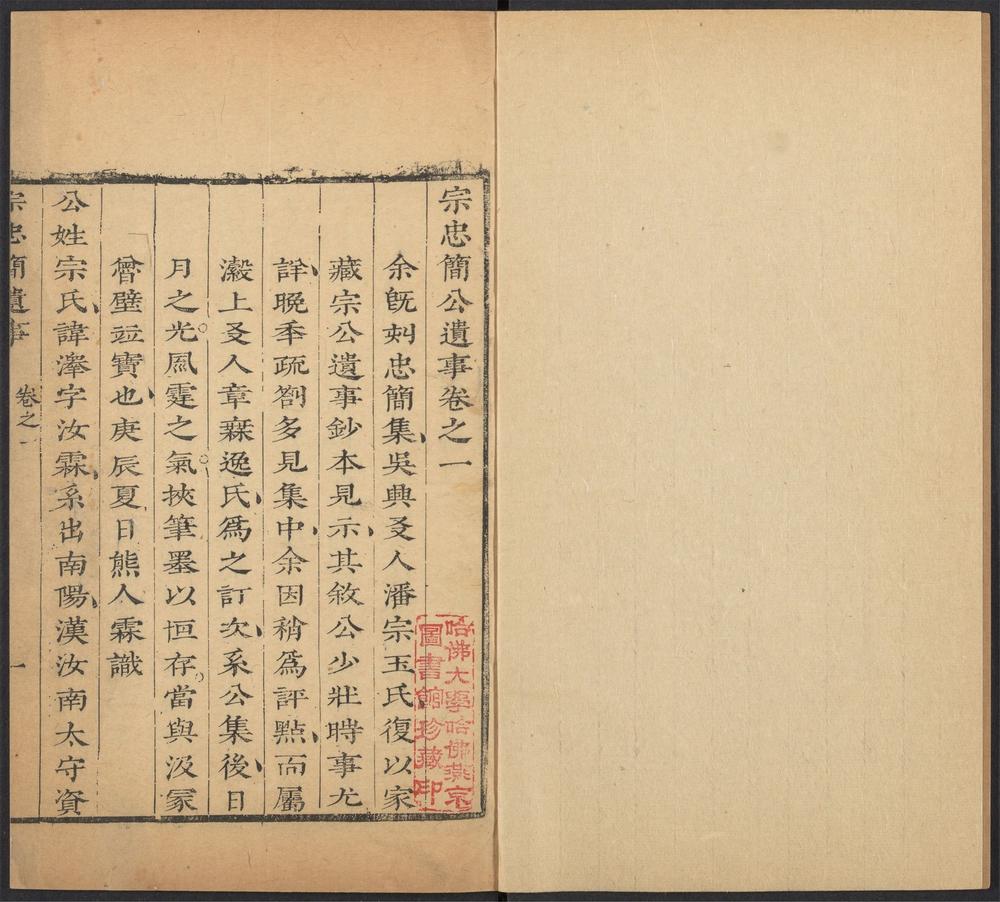 宗忠簡公遺事卷之一
余旣刻忠簡集吳興叐人潘宗玉氏復以家
藏宗公遺事鈔本見示其敘公少壯時事尤
詳晚年疏劄多見集中余因稍爲評㸃而屬
瀫上叐人章無逸氏爲之訂次系公集後日
月之光風霆之氣挾筆墨以恒存當與汲冢
魯壁竝寶也庚辰夏日熊人霖識
公姓宗氏諱澤字汝霖系出南陽漢汝南太守資
宗忠簡遺事
卷之一
一
哈佛大學哈佛燕京
圖書館珍藏印